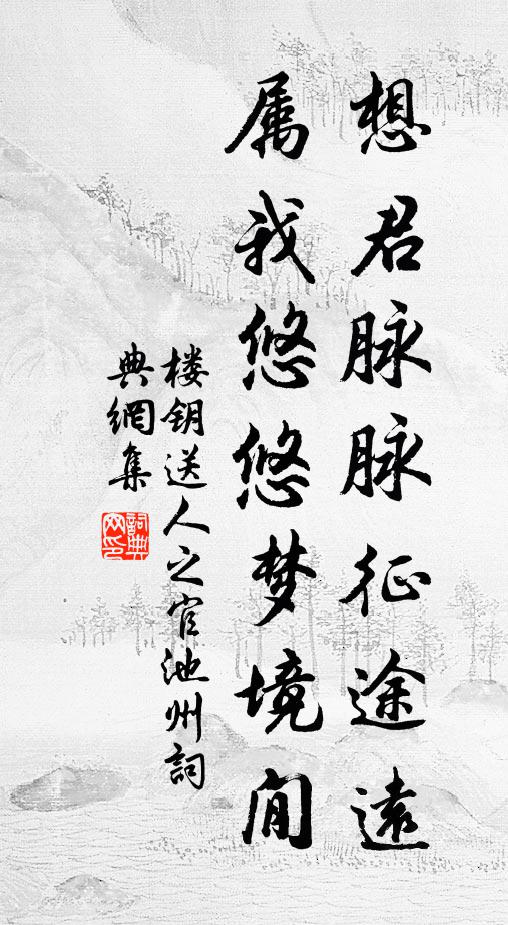 想君脉脉征途远
属我悠悠梦境间
楼钥送人之官池州詞
典網集
詞典
网印